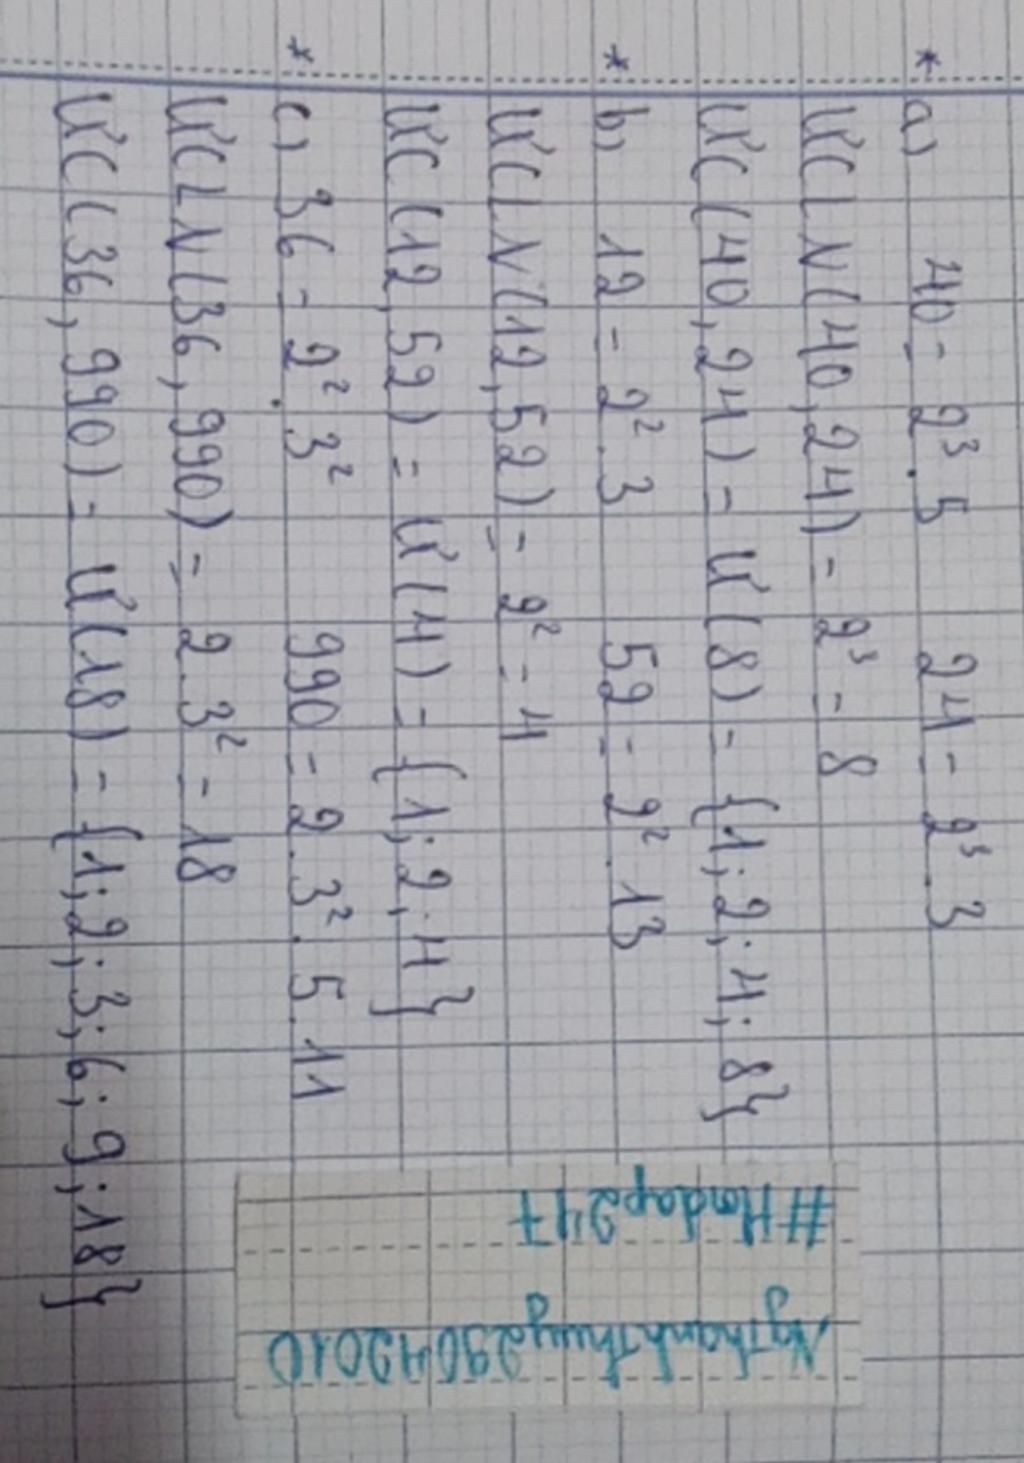 * a) 40 = 2³.5 24 = 2³.3
ƯCLN(40,24) = 2³ = 8
ƯC(40,24) = Ư(8) = {1;2;4;8}
* b) 12 = 2².3 52 = 2².13
ƯCLN(12,52) = 2² = 4
ƯC(12,52) = Ư(4) = {1;2;4}
* c) 36 = 2².3² 990 = 2.3².5.11
ƯCLN(36,990) = 2.3² = 18
ƯC(36,990) = Ư(18) = {1;2;3;6;9;18}
#Hoidap247